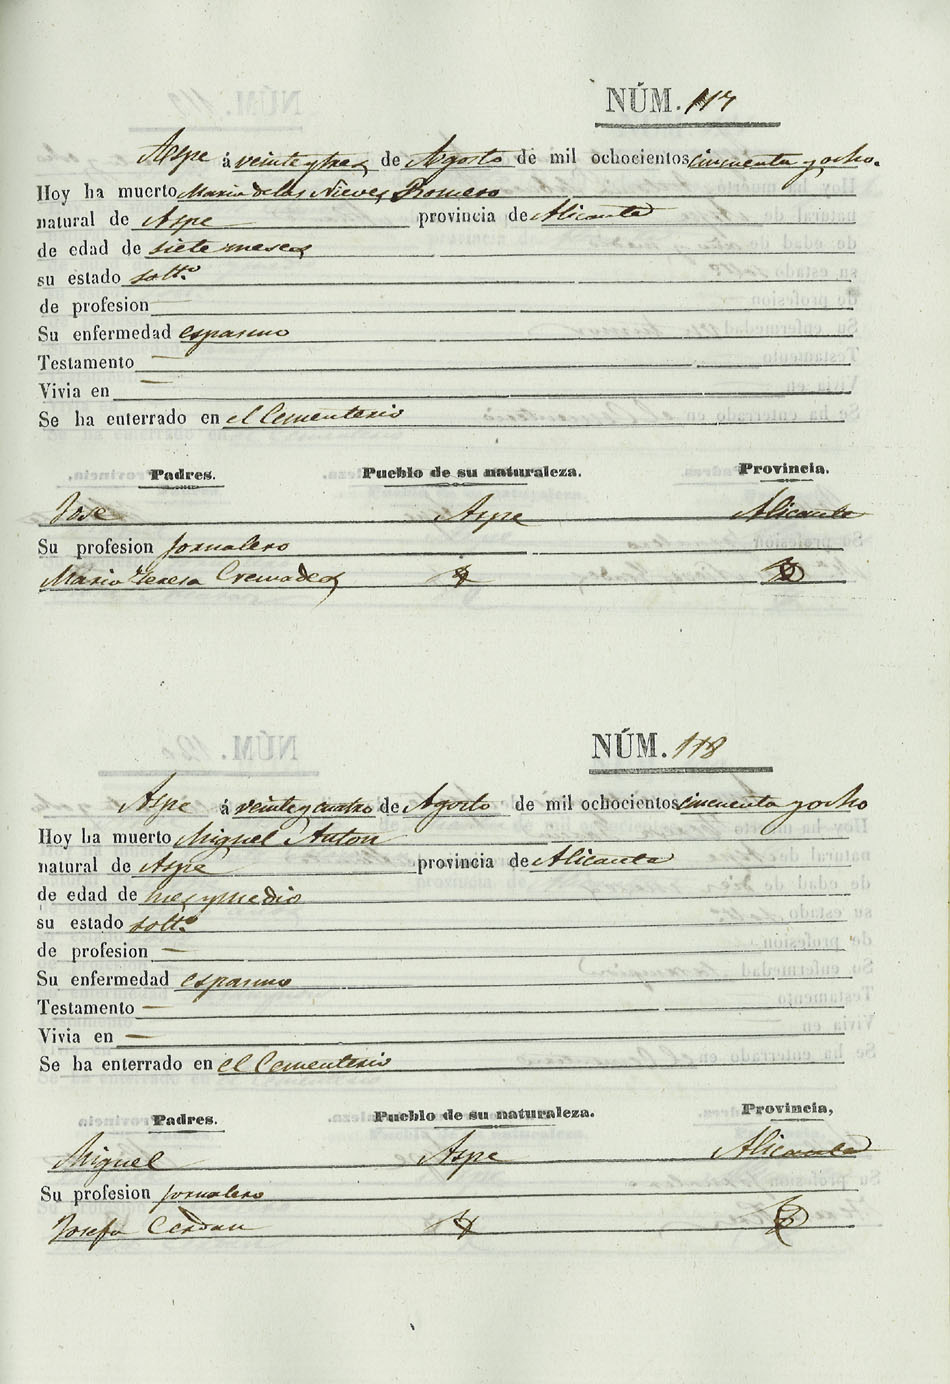 NÚM. 117
Aspe á veinte y tres de Agosto de mil ochocientos cincuenta y ocho.
Hoy ha muerto Maria de las Nieves Romero
natural de Aspe provincia de Alicante
de edad de siete meses
su estado soltº
de profesion —
Su enfermedad espasmo
Testamento —
Vivia en —
Se ha enterrado en el Cementerio
Padres. Pueblo de su naturaleza. Provincia.
Jose Aspe Alicante
Su profesion jornalero
Maria Teresa Cremades
NÚM. 118
Aspe á veinte y cuatro de Agosto de mil ochocientos cincuenta y ocho
Hoy ha muerto Miguel Anton
natural de Aspe provincia de Alicante
de edad de mes y medio
su estado soltº
de profesion —
Su enfermedad espasmo
Testamento —
Vivia en —
Se ha enterrado en el Cementerio
Padres. Pueblo de su naturaleza. Provincia,
Miguel Aspe Alicante
Su profesion jornalero
Josefa Cerdan